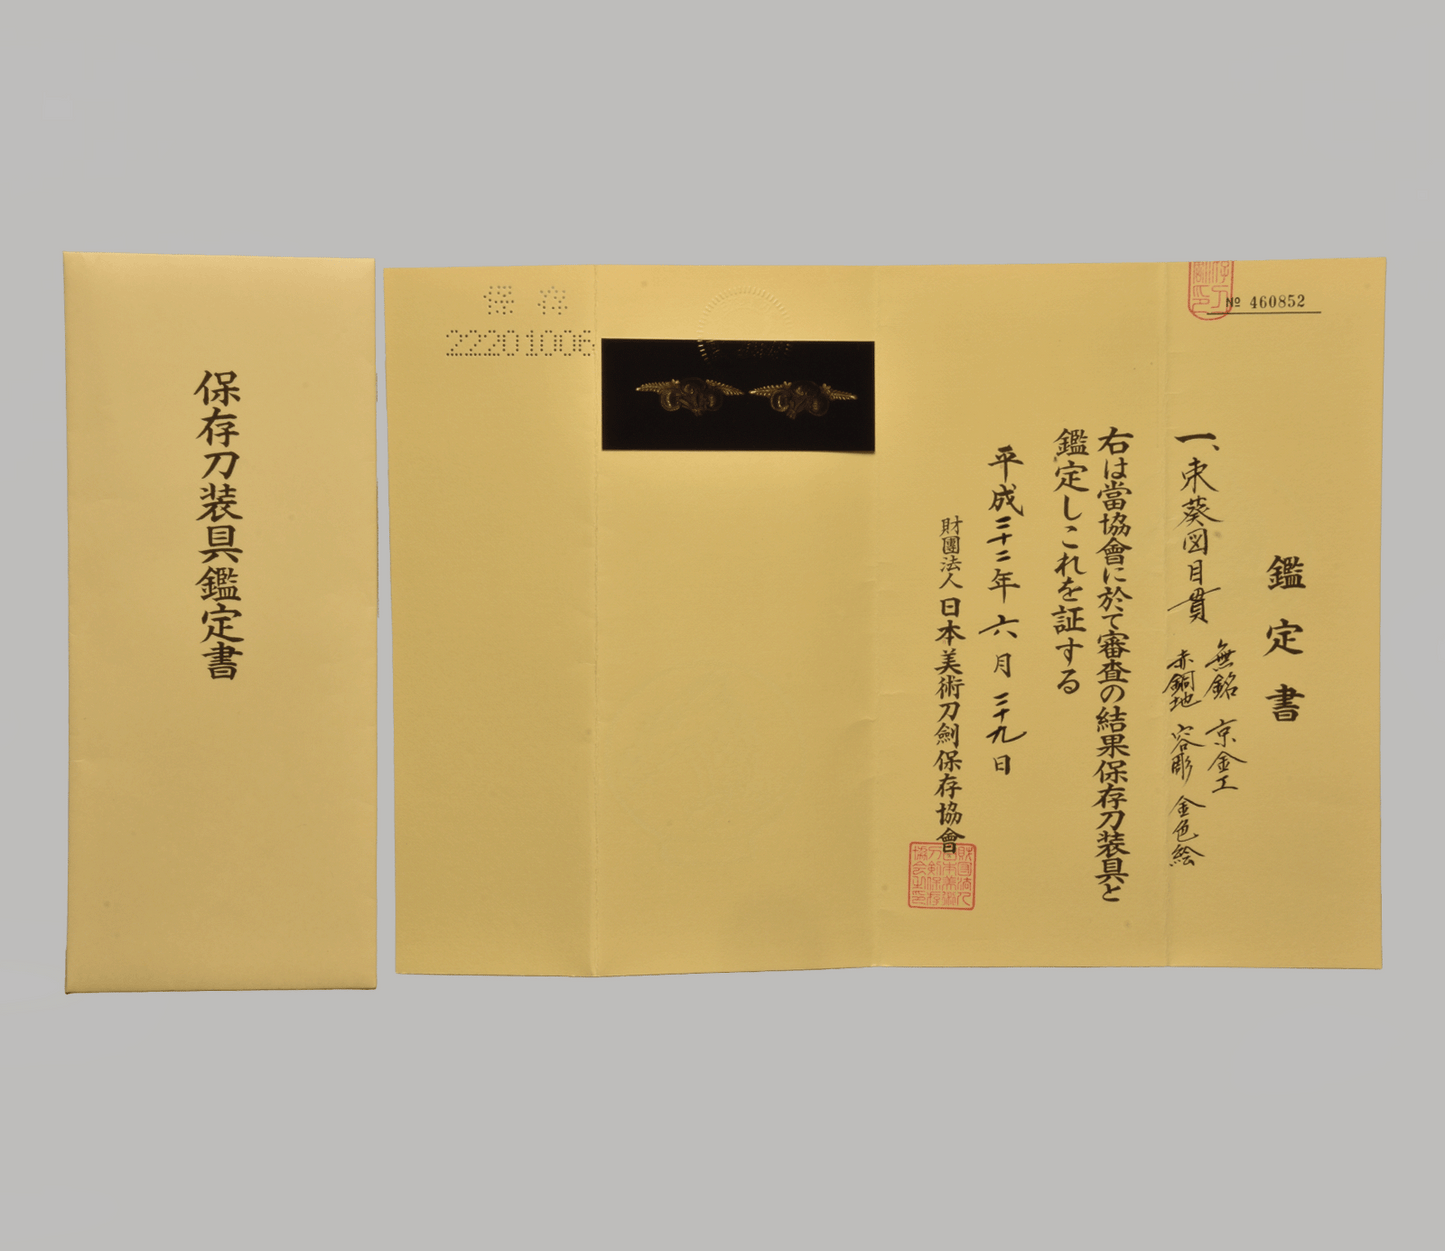 保存刀装具鑑定書
№ 460852
鑑定書
一、束葵図目貫
無銘 京金工
赤銅地 容彫 金色絵
右は當協會に於て審査の結果保存刀装具と
鑑定しこれを証する
平成二十二年六月二十九日
財團法人日本美術刀劍保存協會
保存
22201006